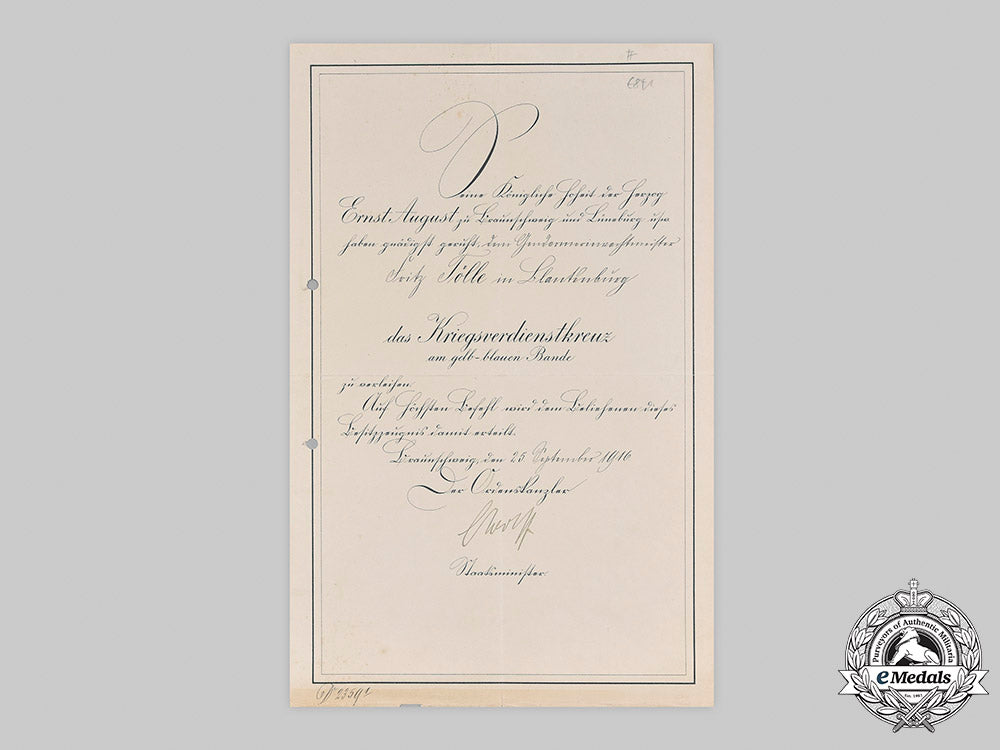 #
Seine Königliche Hoheit der Herzog
Ernst August zu Braunschweig und Lüneburg usw
haben gnädigst geruht, dem Gendarmeriewachtmeister
Fritz Tölle in Blankenburg
das Kriegsverdienstkreuz
am gelb-blauen Bande
zu verleihen.
Auf Höchsten Befehl wird dem Beliehenen dieses
Besitzzeugnis damit erteilt.
Braunschweig, den 25 September 1916
Der Ordenskanzler
Staatsminister
Purveyors of Authentic Militaria
eMedals